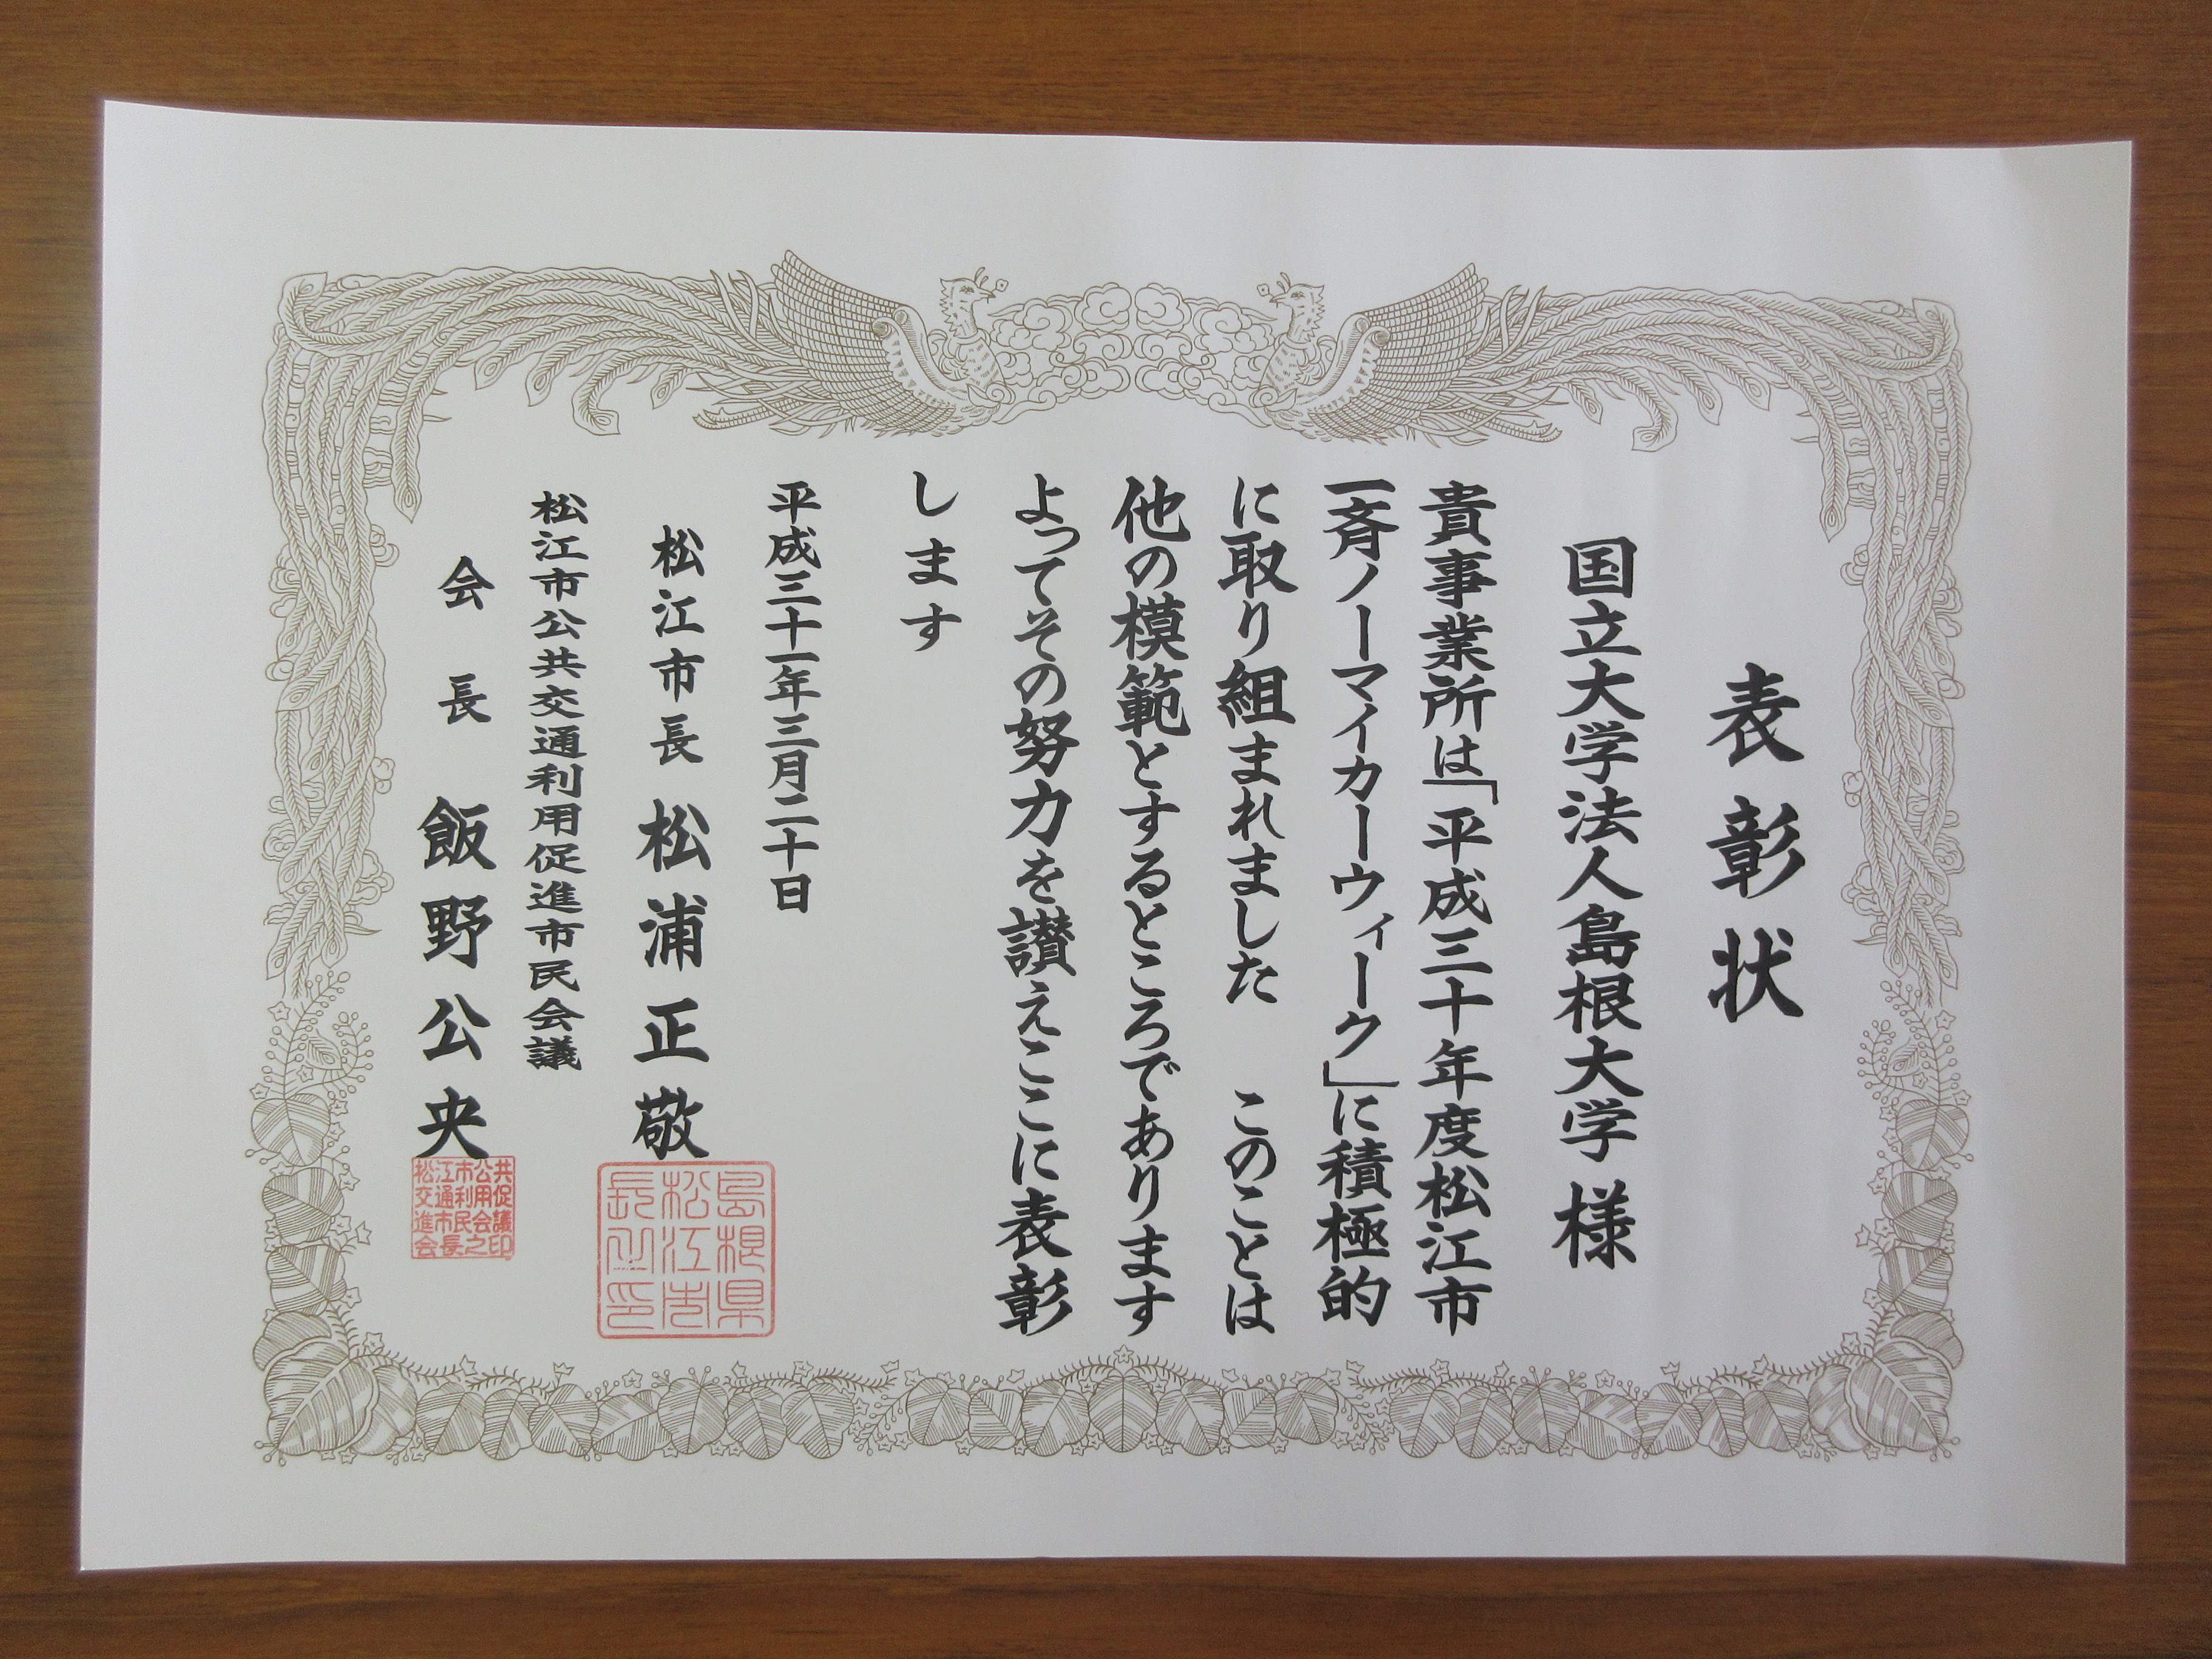 表彰状
国立大学法人島根大学様
貴事業所は「平成三十年度松江市
一斉ノーマイカーウィーク」に積極的
に取り組まれました　このことは
他の模範とするところであります
よってその努力を讃えここに表彰
します
平成三十一年三月二十日
松江市長 松浦正敬
島根県
松江市
長之印
松江市公共交通利用促進市民会議
会長 飯野公央
松江市公共
交通利用促
進市民会議
会長之印